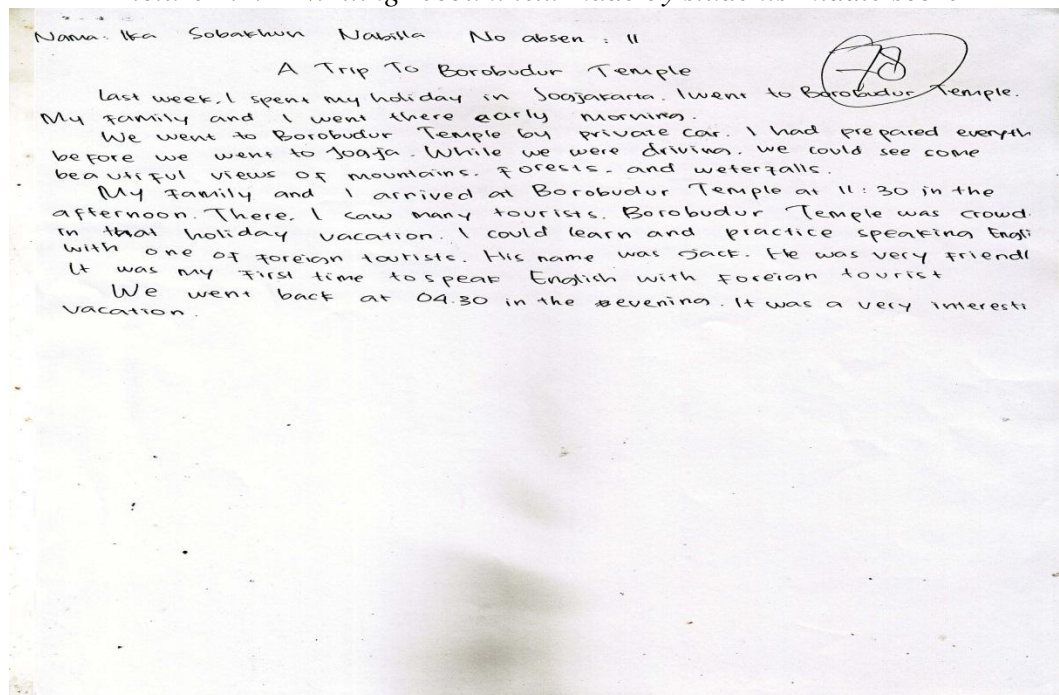 Nama: Ika Sobakhun Nabilla No absen : 11
78
A Trip To Borobudur Temple
Last week, I spent my holiday in Jogjakarta. I went to Borobudur Temple.
My family and I went there early morning.
We went to Borobudur Temple by private car. I had prepared everyth
before we went to Jogja. While we were driving, we could see some
beautiful views of mountains, forests, and weterfalls.
My family and I arrived at Borobudur Temple at 11:30 in the
afternoon. There, I saw many tourists. Borobudur Temple was crowd
in that holiday vacation. I could learn and practice speaking Engli
with one of foreign tourists. His name was Jack. He was very friendl
It was my first time to speak English with foreign tourist
We went back at 04.30 in the evening. It was a very interesti
vacation.